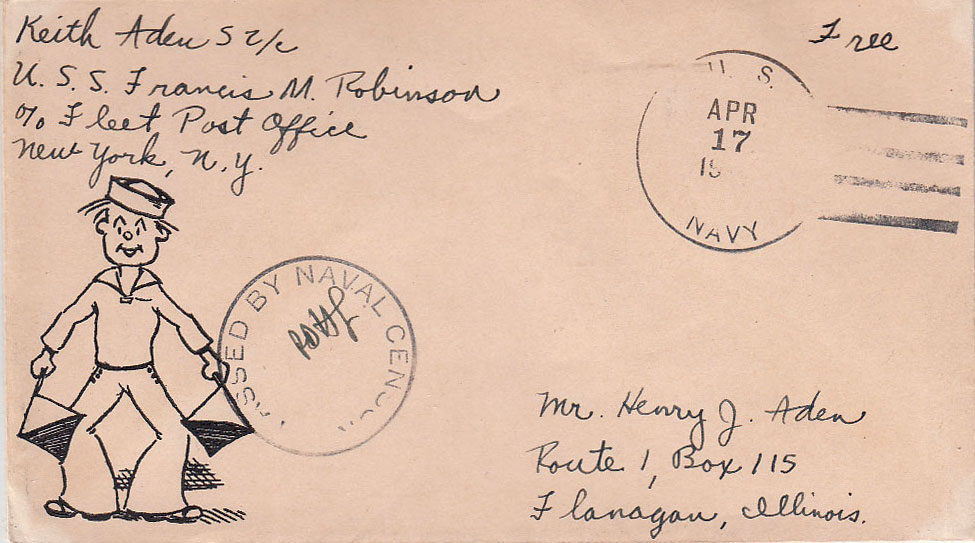 Keith Aden S 2/c
U. S. S. Francis M. Robinson
c/o Fleet Post Office
New York, N. Y.
Free
U. S.
APR
17
NAVY
BY NAVAL
Mr. Henry J. Aden
Route 1, Box 115
Flanagan, Illinois.